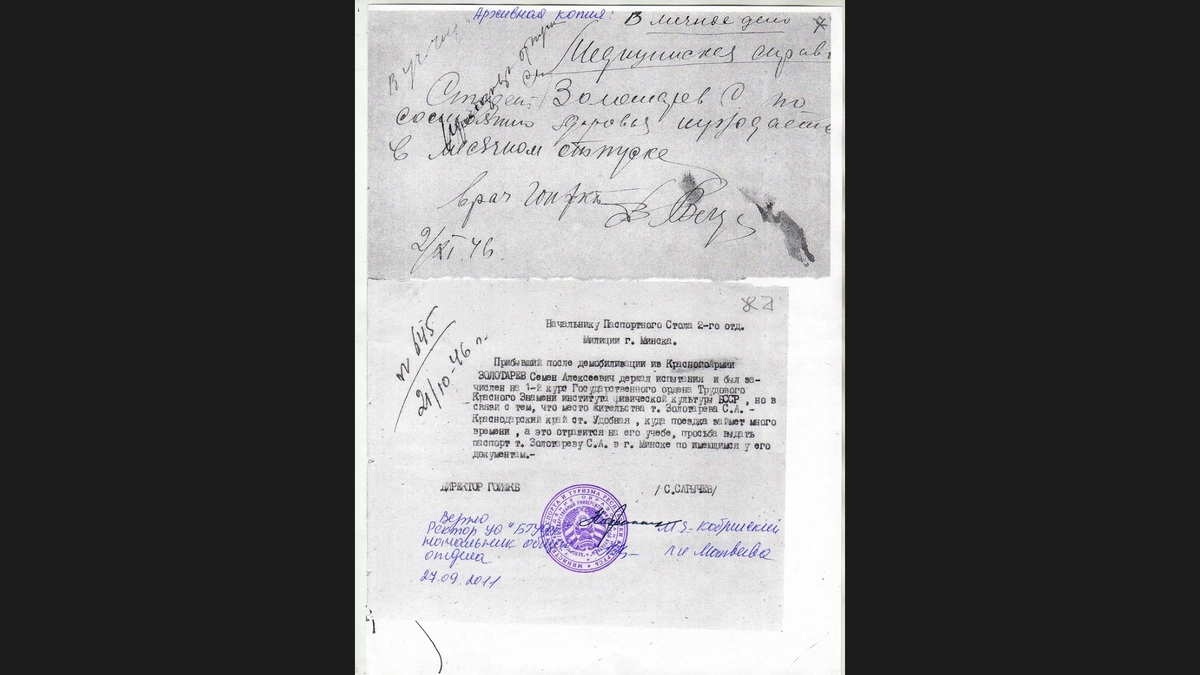 Архивная копия: В личное дело
Медицинская справ
Студент Золотарев С по
состоянию здоровья нуждается
в месячном отпуске
врач
2/XI.46.
№ 645
21/10-46 г.
Начальнику Паспортного Стола 2-го отд.
Милиции г. Минска.
Прибывший после демобиливации из КрасногоАрмии
ЗОЛОТАРЕВ Семен Алексеевич держал испытания и был за-
числен на 1-й курс Государственного ордена Трудового
Красного Знамени института фивической культуры БССР , но в
связи с тем, что место жительства т. Золотарева С.А. -
Краснодарский край ст. Удобная , куда поездка займет много
времени , а это отравится на его учебе, просьба выдать
паспорт т. Золотареву С.А. в г. Минске по имеющимся у его
документам.-
ДИРЕКТОР ГОИФКБ /С.САРЫЧЕВ/
Верно
Ректор УО "БГУФК М.Э. Кобринский
начальник общего
отдела
27.09.2011